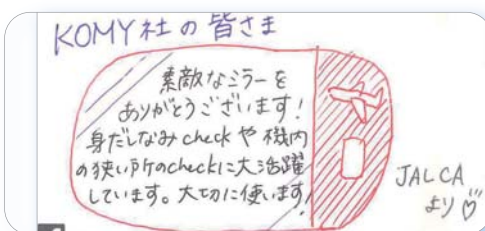 KOMY社の皆さま
素敵なミラーを
ありがとうございます!
身だしなみcheckや機内
の狭い所のcheckに大活躍
しています。大切に使います!
JALCA
より♡